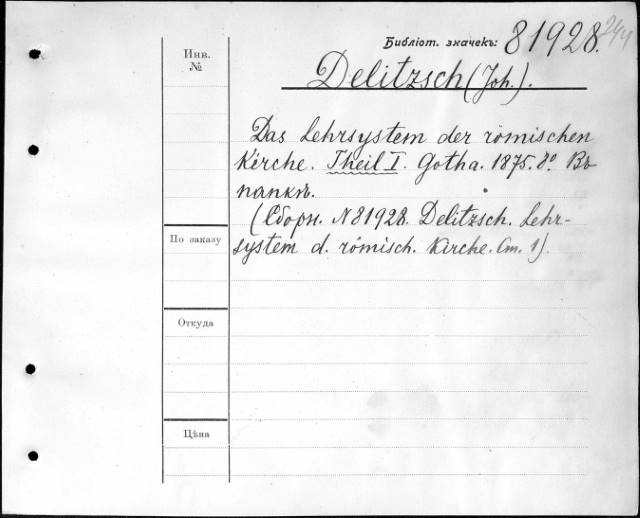 Библіот. значекъ: 81928. 244
Инв.
№
Delitzsch (Joh.).
Das Lehrsystem der römischen
Kirche. Theil I. Gotha. 1875. 8º. Въ
папкѣ.
(Сборн. № 81928. Delitzsch. Lehr-
system d. römisch. Kirche. Ст. 1).
По заказу
Откуда
Цѣна